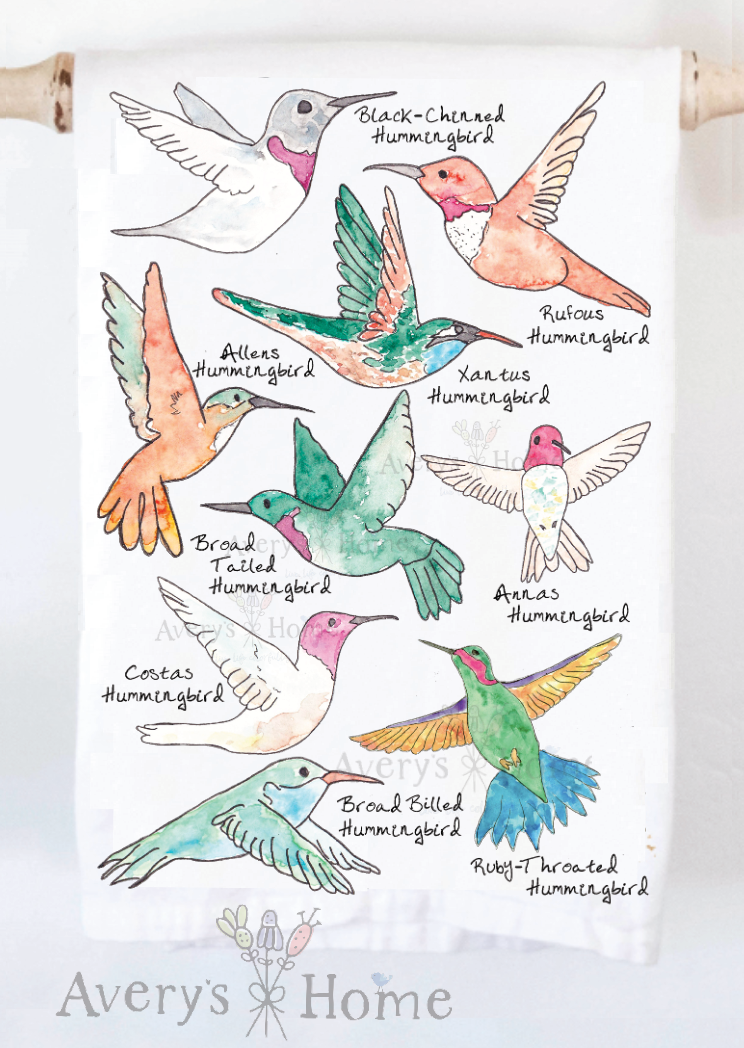 Black-Chinned
Hummingbird
Rufous
Hummingbird
Allens
Hummingbird
Xantus
Hummingbird
Avery's Home
Broad
Tailed
Hummingbird
Annas
Hummingbird
Avery's Home
Costas
Hummingbird
Avery's
Broad Billed
Hummingbird
Ruby-Throated
Hummingbird
Avery's Home